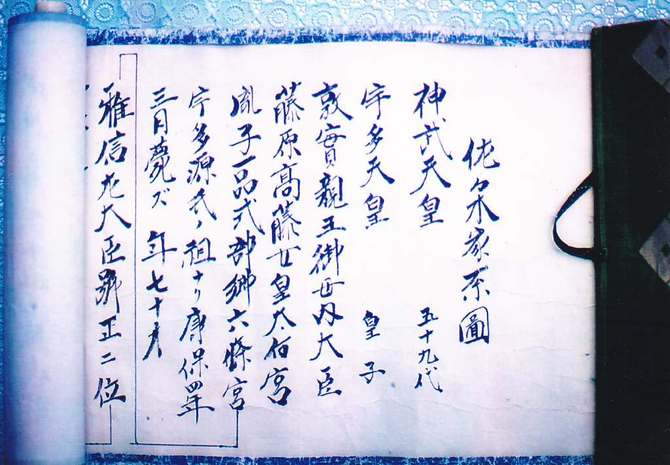 佐々木家系圖
神武天皇 五十九代
宇多天皇 皇子
敦實親王御母内大臣
藤原高藤女皇太后宮
胤子一品式部郷六條宮
宇多源氏ノ祖ナリ康保四年
三月薨ズ 年七十
雅信左大臣 正二位